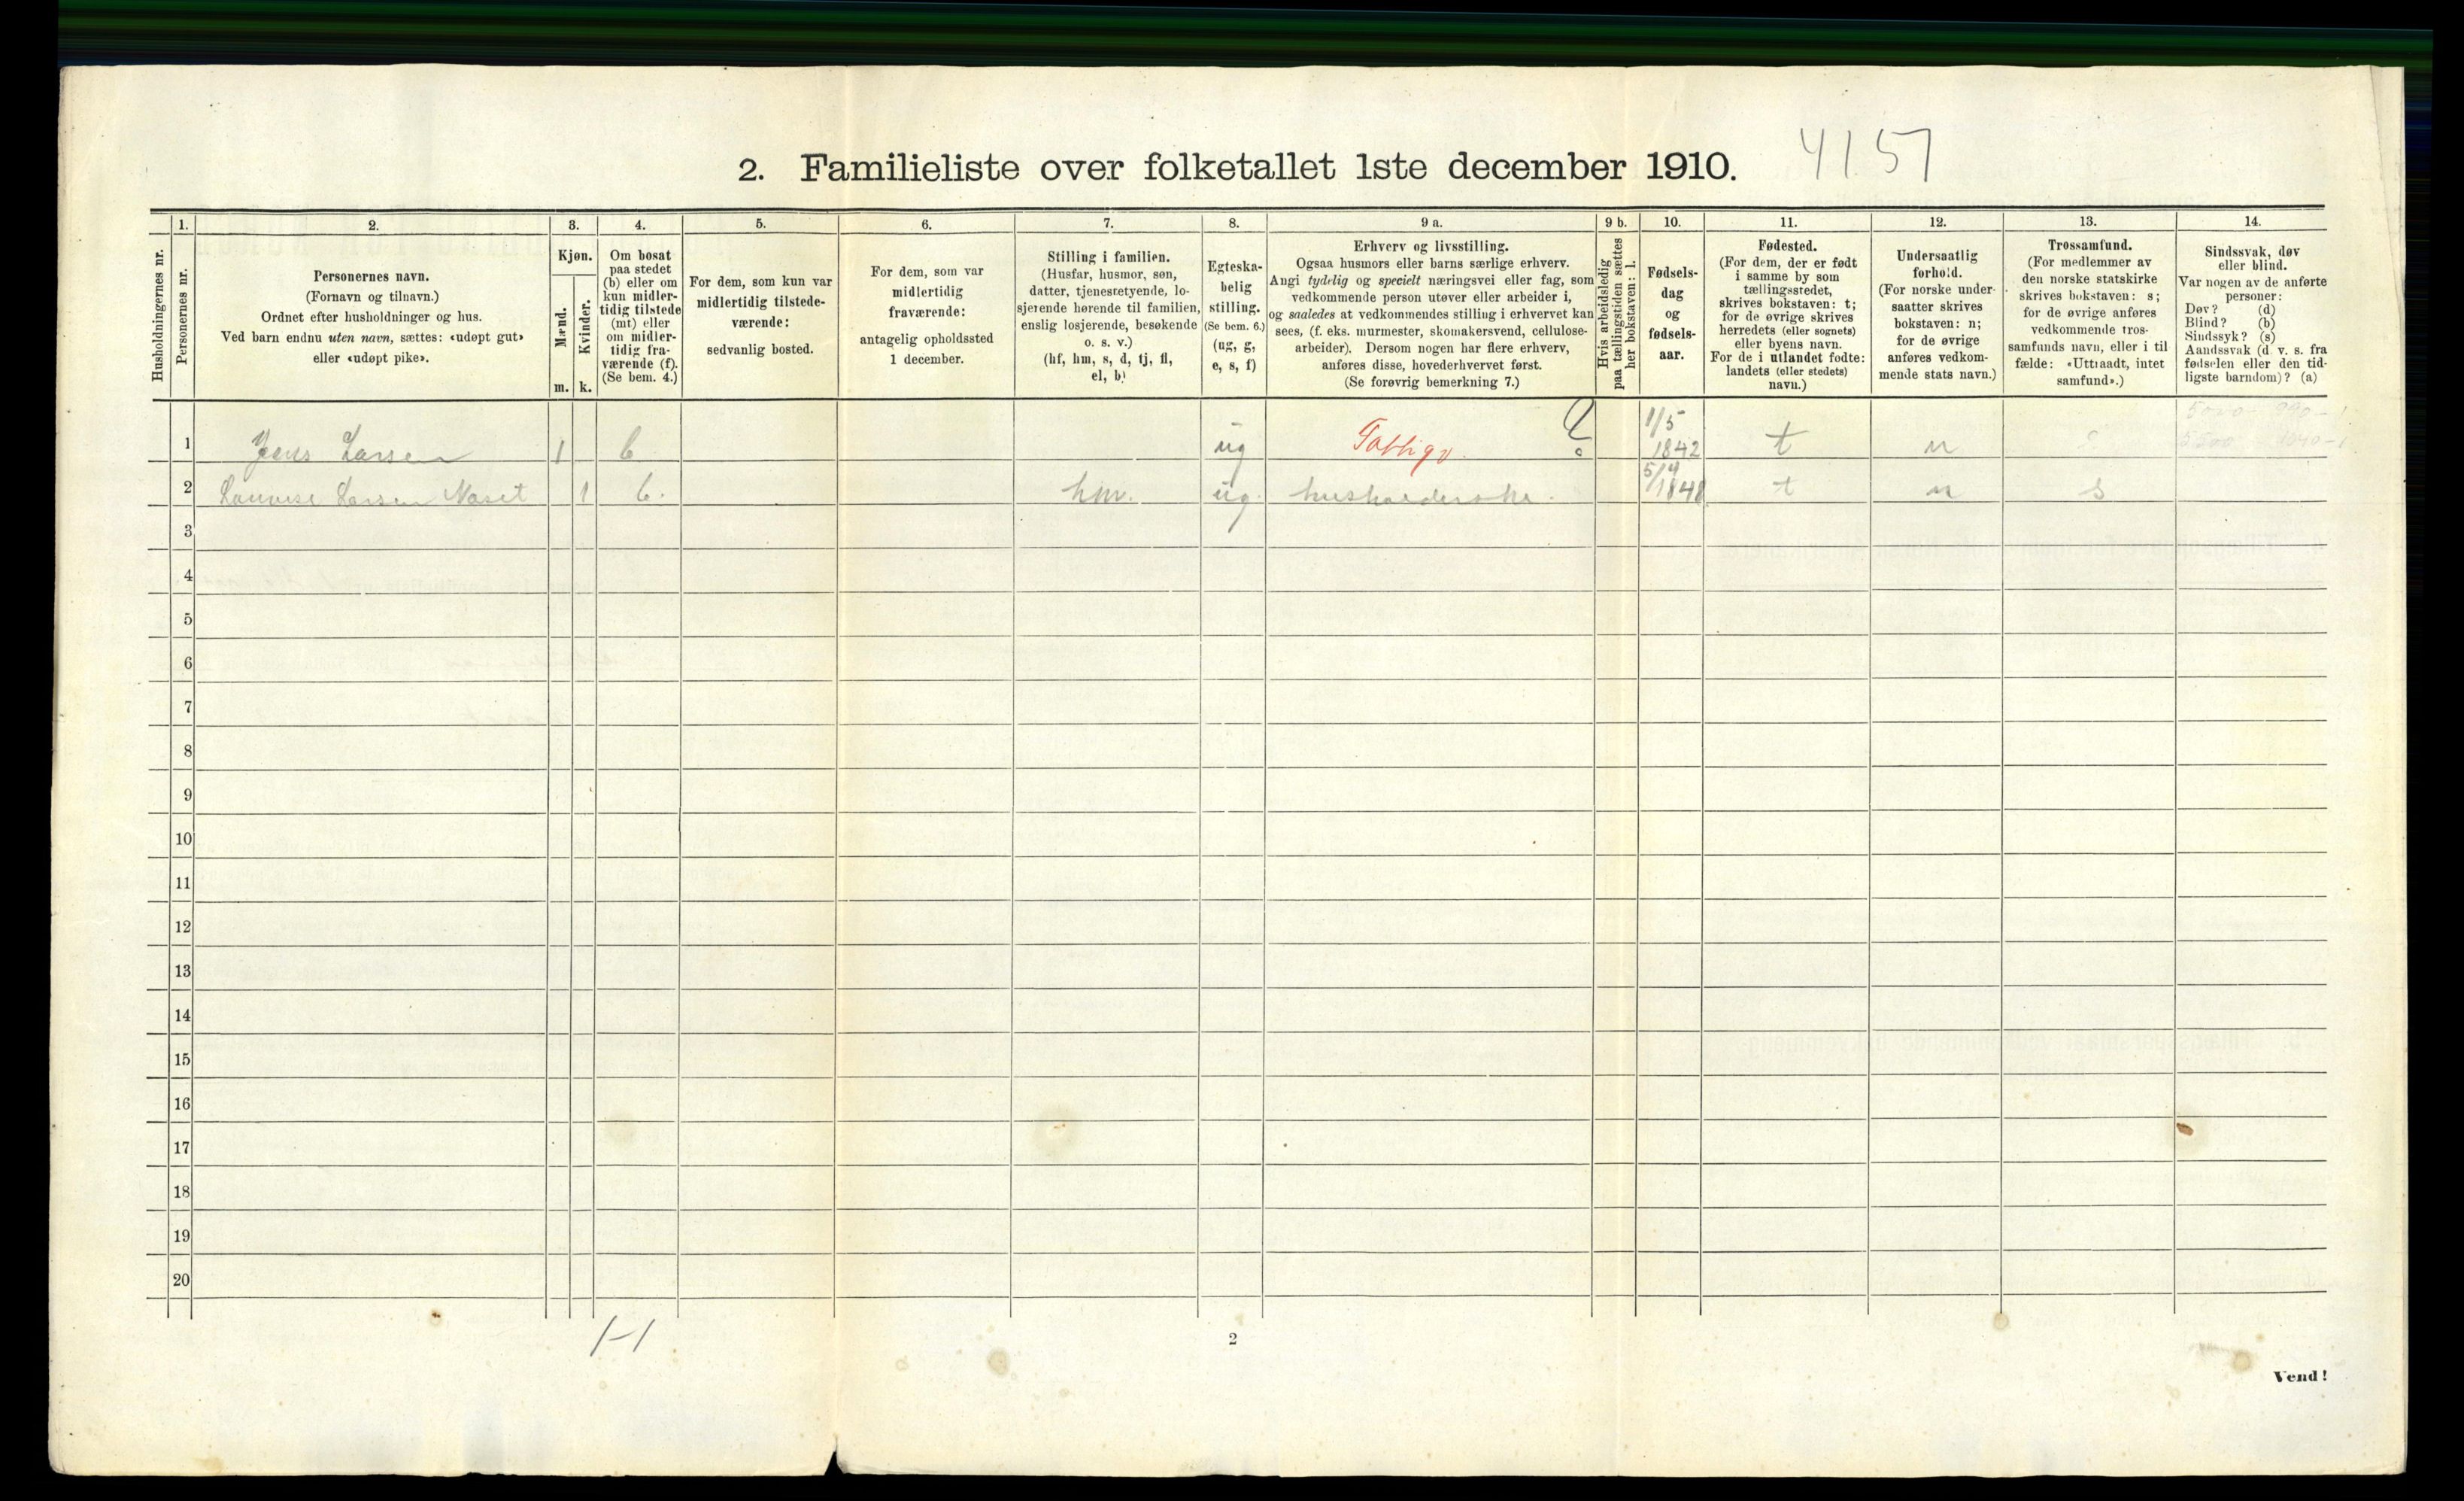 2. Familieliste over folketallet 1ste december 1910. 4157
Husholdningernes nr.
1.
Personernes nr.
2.
Personernes navn.
(Fornavn og tilnavn.)
Ordnet efter husholdninger og hus.
Ved barn endnu uten navn, sættes: «udøpt gut»
eller «udøpt pike».
3.
Kjøn.
Mænd.
m.
Kvinder.
k.
4.
Om bosat
paa stedet
(b) eller om
kun midler-
tidig tilstede
(mt) eller
om midler-
tidig fra-
værende (f).
(Se bem. 4.)
5.
For dem, som kun var
midlertidig tilstede-
værende:
sedvanlig bosted.
6.
For dem, som var
midlertidig
fraværende:
antagelig opholdssted
1 december.
7.
Stilling i familien.
(Husfar, husmor, søn,
datter, tjenestetyende, lo-
sjerende hørende til familien,
enslig losjerende, besøkende
o. s. v.)
(hf, hm, s, d, tj, fl,
el, b)
8.
Egteska-
belig
stilling.
(Se bem. 6.)
(ug, g,
e, s, f)
9 a.
Erhverv og livsstilling.
Ogsaa husmors eller barns særlige erhverv.
Angi tydelig og specielt næringsvei eller fag, som
vedkommende person utøver eller arbeider i,
og saaledes at vedkommendes stilling i erhvervet kan
sees, (f. eks. murmester, skomakersvend, cellulose-
arbeider). Dersom nogen har flere erhverv,
anføres disse, hovederhvervet først.
(Se forøvrig bemerkning 7.)
9 b.
Hvis arbeidsledig
paa tællingstiden sættes
her bokstaven: l.
10.
Fødsels-
dag
og
fødsels-
aar.
11.
Fødested.
(For dem, der er født
i samme by som
tællingsstedet,
skrives bokstaven: t;
for de øvrige skrives
herredets (eller sognets)
eller byens navn.
For de i utlandet fødte:
landets (eller stedets)
navn.)
12.
Undersaatlig
forhold.
(For norske under-
saatter skrives
bokstaven: n;
for de øvrige
anføres vedkom-
mende stats navn.)
13.
Trossamfund.
(For medlemmer av
den norske statskirke
skrives bokstaven: s;
for de øvrige anføres
vedkommende tros-
samfunds navn, eller i til
fælde: «Uttraadt, intet
samfund».)
14.
Sindssvak, døv
eller blind.
Var nogen av de anførte
personer:
Døv? (d)
Blind? (b)
Sindssyk? (s)
Aandssvak (d. v. s. fra
fødselen eller den tid-
ligste barndom)? (a)
1 Jens Larsen 1 b ug ? 1/5 1842 t n s
2 Larsen Naset 1 b. hm. ug. husholderske. 1848 t n s
3
4
5
6
7
8
9
10
11
12
13
14
15
16
17
18
19
20
1-1
2
Vend!